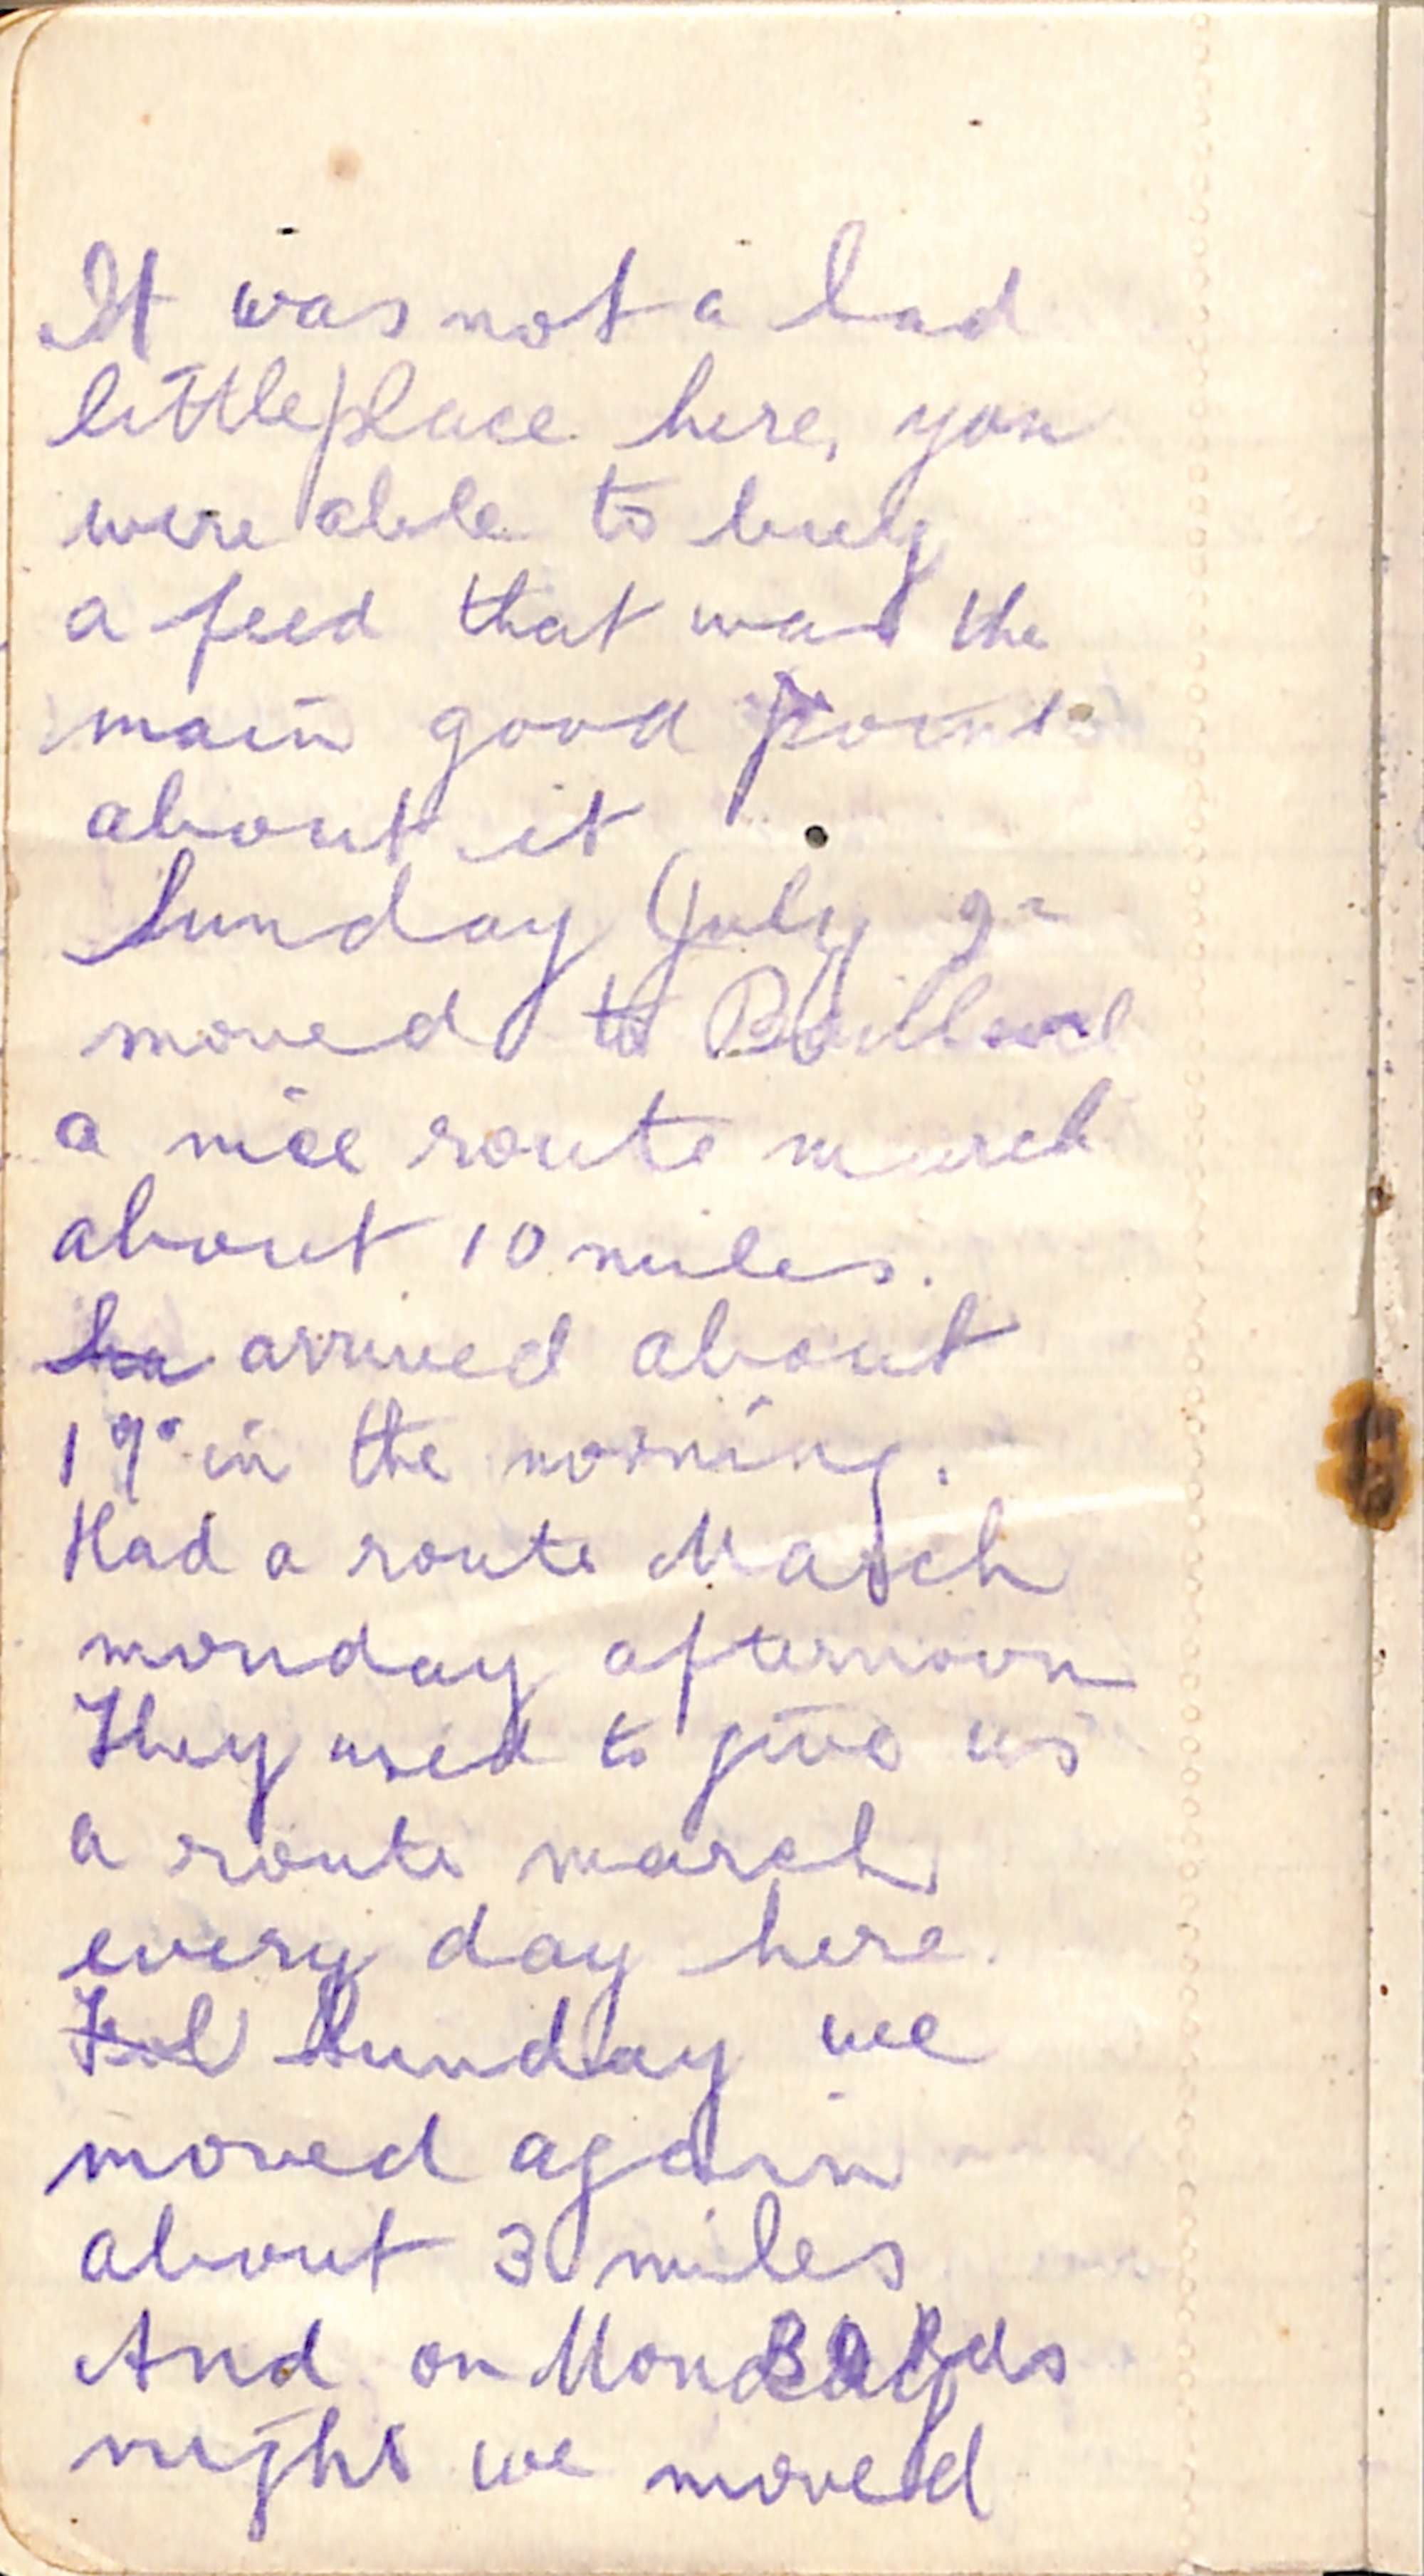 It was not a bad
little place here, you
were able to buy
a feed that was the
main good points
about it
Sunday July 9
moved to
a nice route march
about 10 miles.
arrived about
in the morning.
Had a route March
monday afternoon
They used to give us
a route march
every day here.
Sunday we
moved again
about 3 miles
And on Monday
night we moved